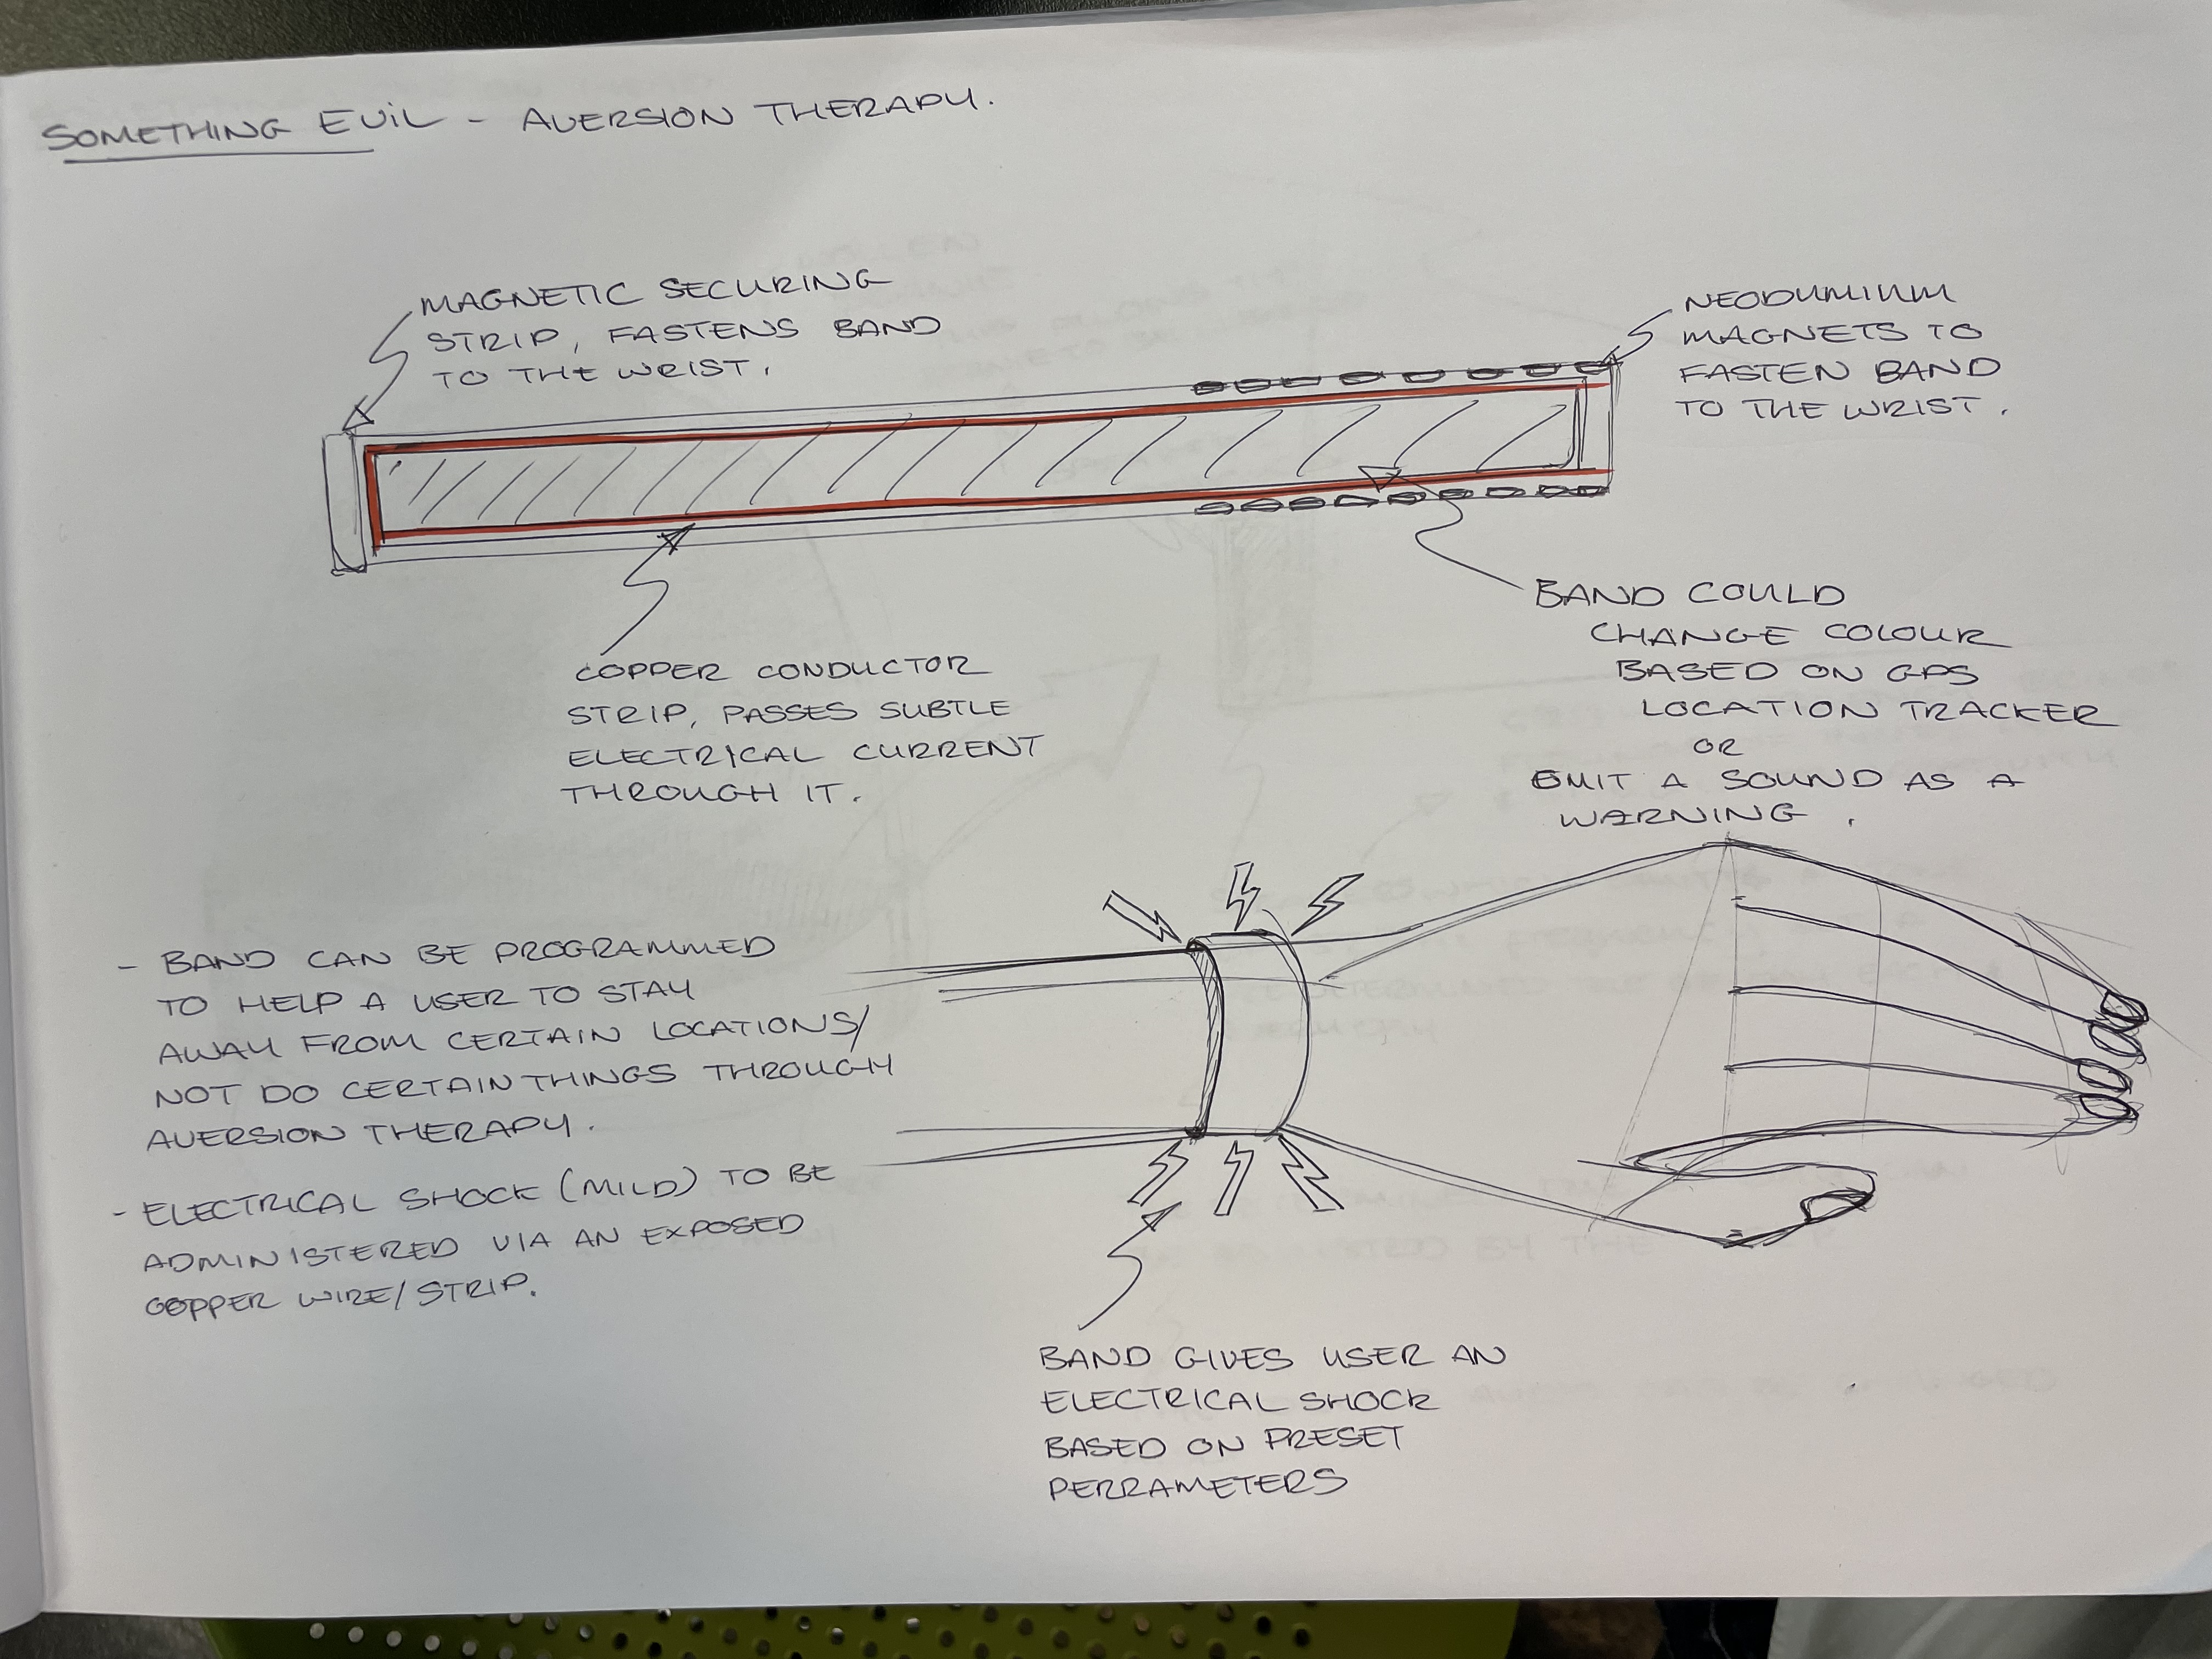 SOMETHING EVIL - AVERSION THERAPY.
MAGNETIC SECURING
STRIP, FASTENS BAND
TO THE WRIST.
NEODYMIUM
MAGNETS TO
FASTEN BAND
TO THE WRIST.
COPPER CONDUCTOR
STRIP, PASSES SUBTLE
ELECTRICAL CURRENT
THROUGH IT.
BAND COULD
CHANGE COLOUR
BASED ON GPS
LOCATION TRACKER
OR
EMIT A SOUND AS A
WARNING.
- BAND CAN BE PROGRAMMED
TO HELP A USER TO STAY
AWAY FROM CERTAIN LOCATIONS/
NOT DO CERTAIN THINGS THROUGH
AVERSION THERAPY.
- ELECTRICAL SHOCK (MILD) TO BE
ADMINISTERED VIA AN EXPOSED
COPPER WIRE/STRIP.
BAND GIVES USER AN
ELECTRICAL SHOCK
BASED ON PRESET
PERRAMETERS